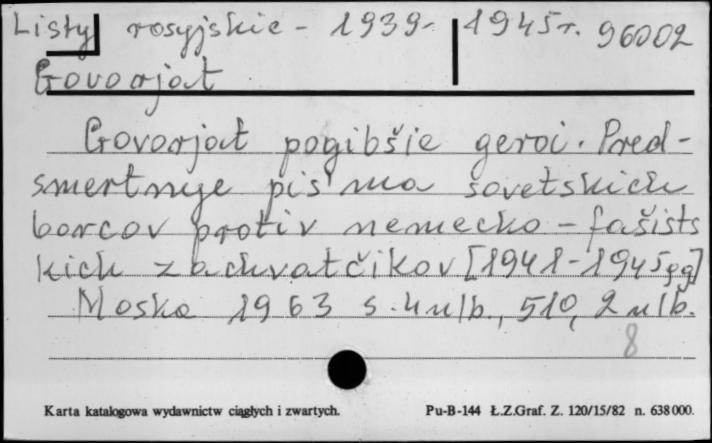 Listy rosyjskie - 1939r. 1945r. 96002
Govorjat
Govorjat pogibšie geroi. Pred-
smertnye pis'ma sovetskich
borcov protiv nemecko - fašists
kich zachvatčikov [1941-1945gg]
Moskva 1963 s. 4 nlb., 510, 2 nlb.
8
Karta katalogowa wydawnictw ciągłych i zwartych. Pu-B-144 Ł.Z.Graf. Z. 120/15/82 n. 638000.